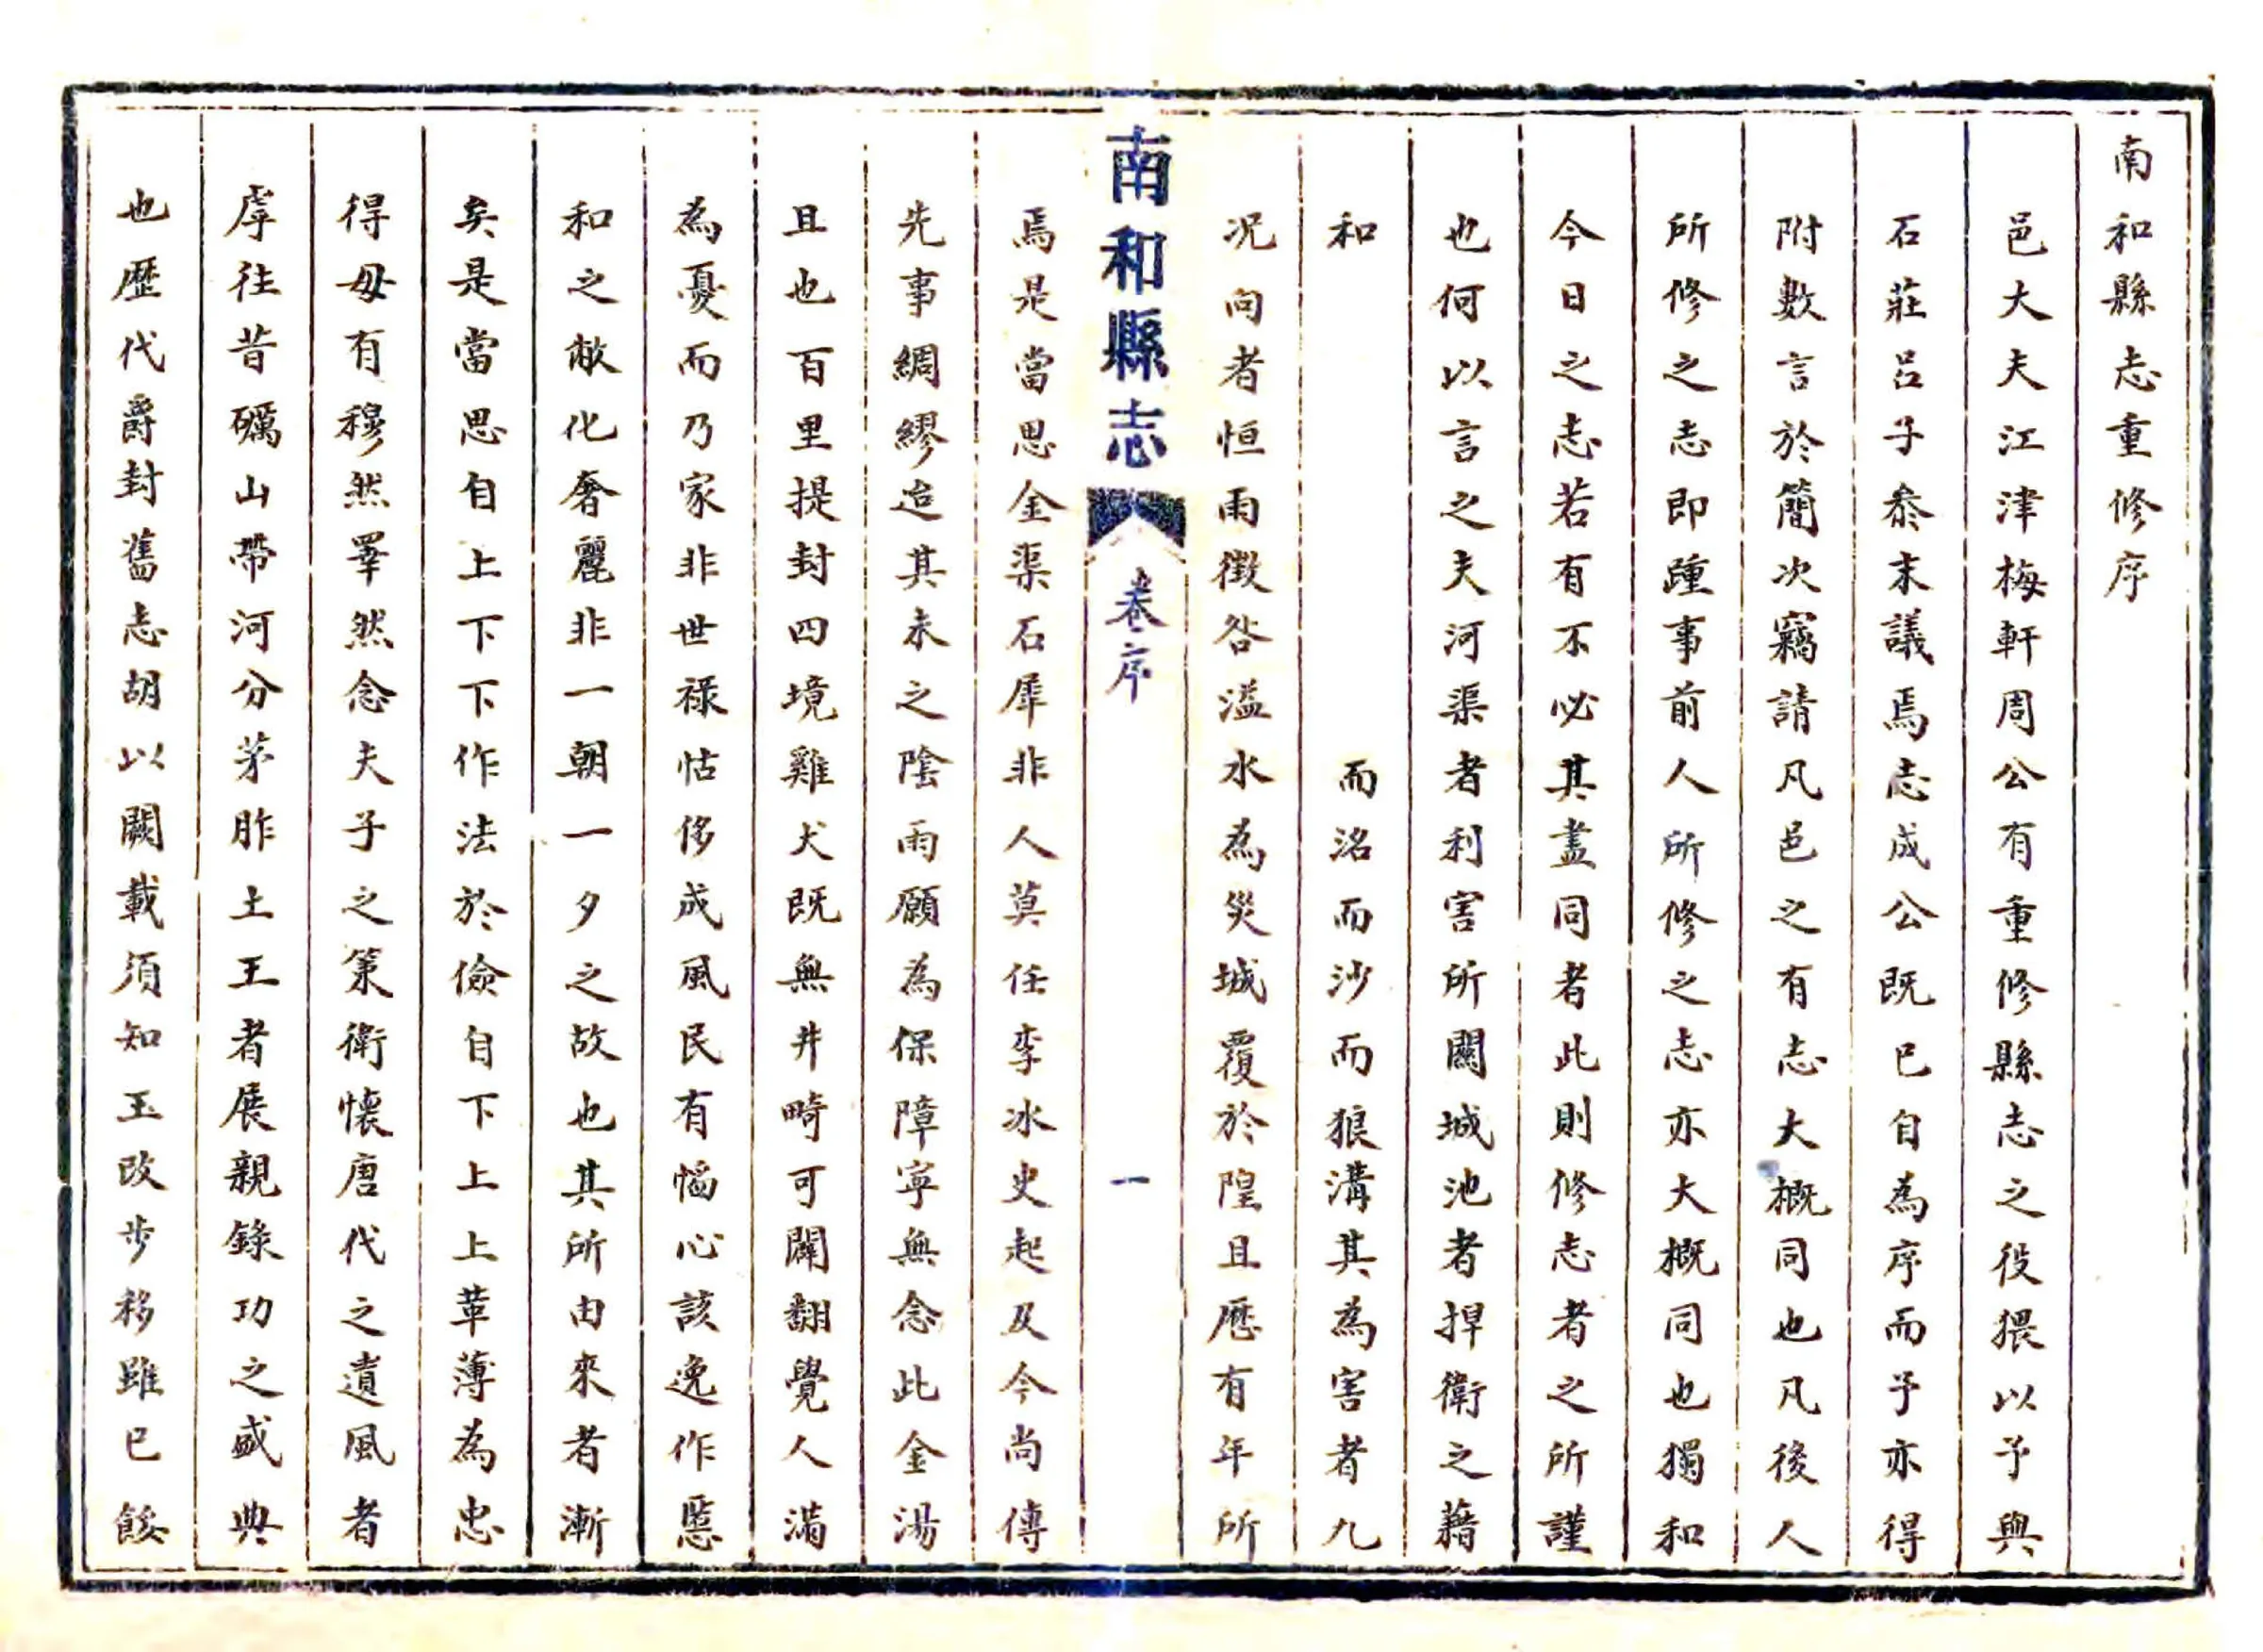 南和縣志重修序
邑大夫江津梅軒周公有重修縣志之役猥以予與
石莊呂子叅末議焉志成公既已自為序而予亦得
附數言於簡次竊請凡邑之有志大概同也凡後人
所修之志即踵事前人所修之志亦大概同也獨和
今日之志若有不必其盡同者此則修志者之所謹
也何以言之夫河渠者利害所關城池者捍衛之藉
和而洺而沙而狼溝其為害者九
况向者恒雨徵咎溢水為災城覆於隍且歷有年所
南和縣志 卷序 一
焉是當思金渠石犀非人莫任李冰史起及今尚傳
先事綢繆迨其未之陰雨願為保障寧無念此金湯
且也百里提封四境雞犬既無井畸可闢翻覺人滿
為憂而乃家非世祿怙侈成風民有惼心該逸作慝
和之敝化奢麗非一朝一夕之故也其所由來者漸
矣是當思自上下下作法於儉自下上上革薄為忠
得毋有穆然睪然念夫子之策衛懷唐代之遺風者
虖往昔礪山帶河分茅胙土王者展親錄功之盛典
也歷代爵封舊志胡以闕載須知玉改步移雖已餒